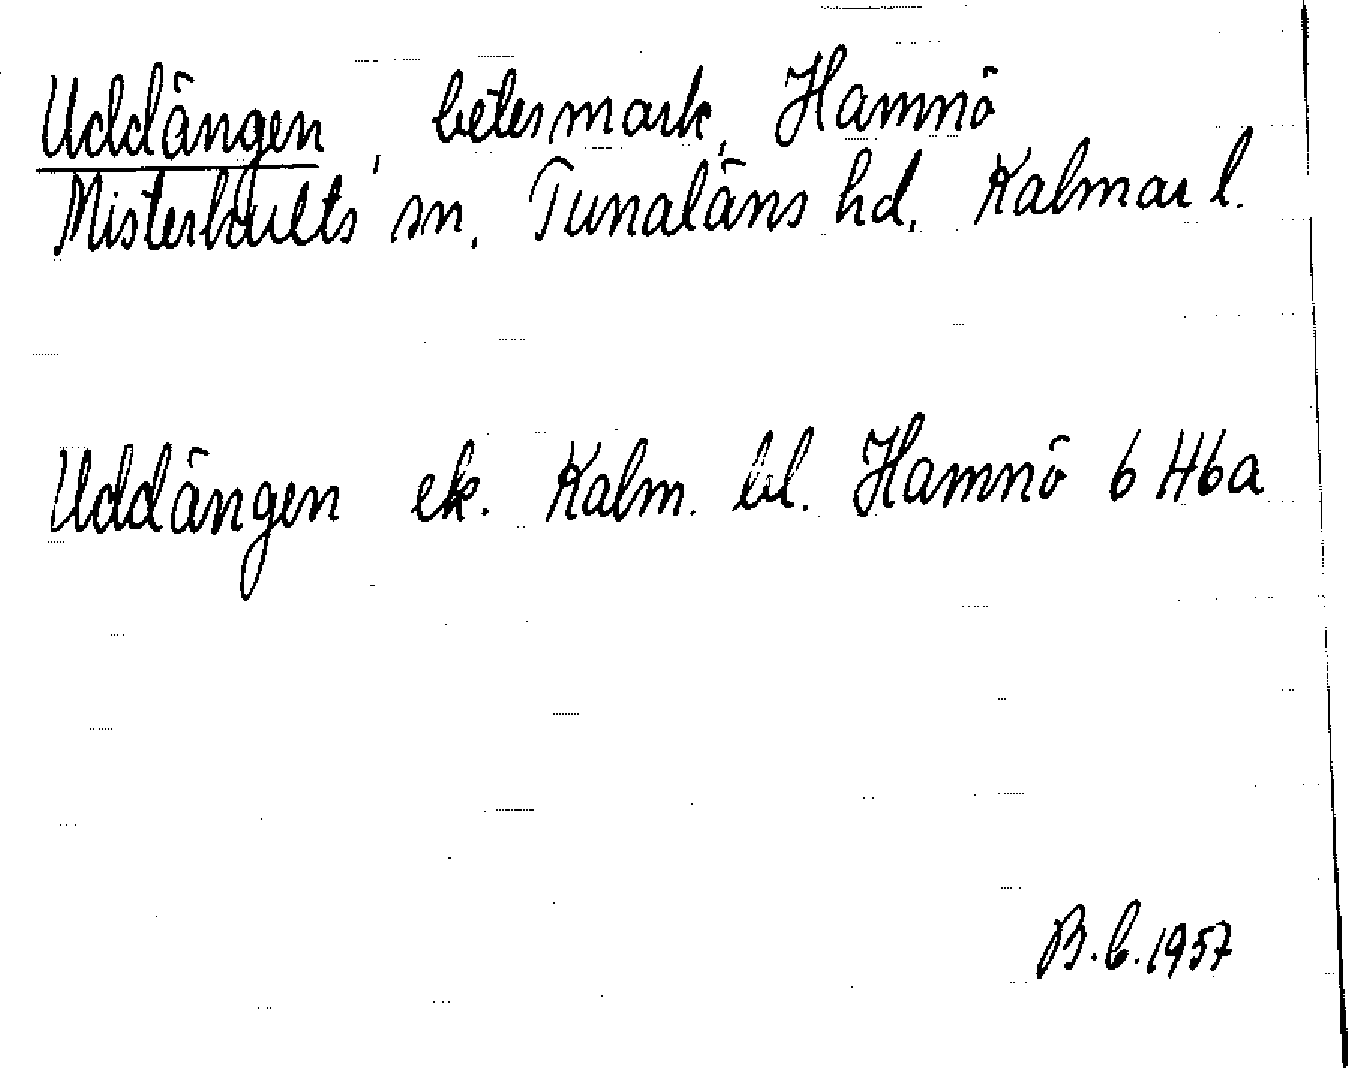 Uddängen, betesmark, Hamnö
Misterhults sn, Tunaläns hd, Kalmar l.
Uddängen ek. Kalm. bl. Hamnö 6 H6a
B.C. 1957